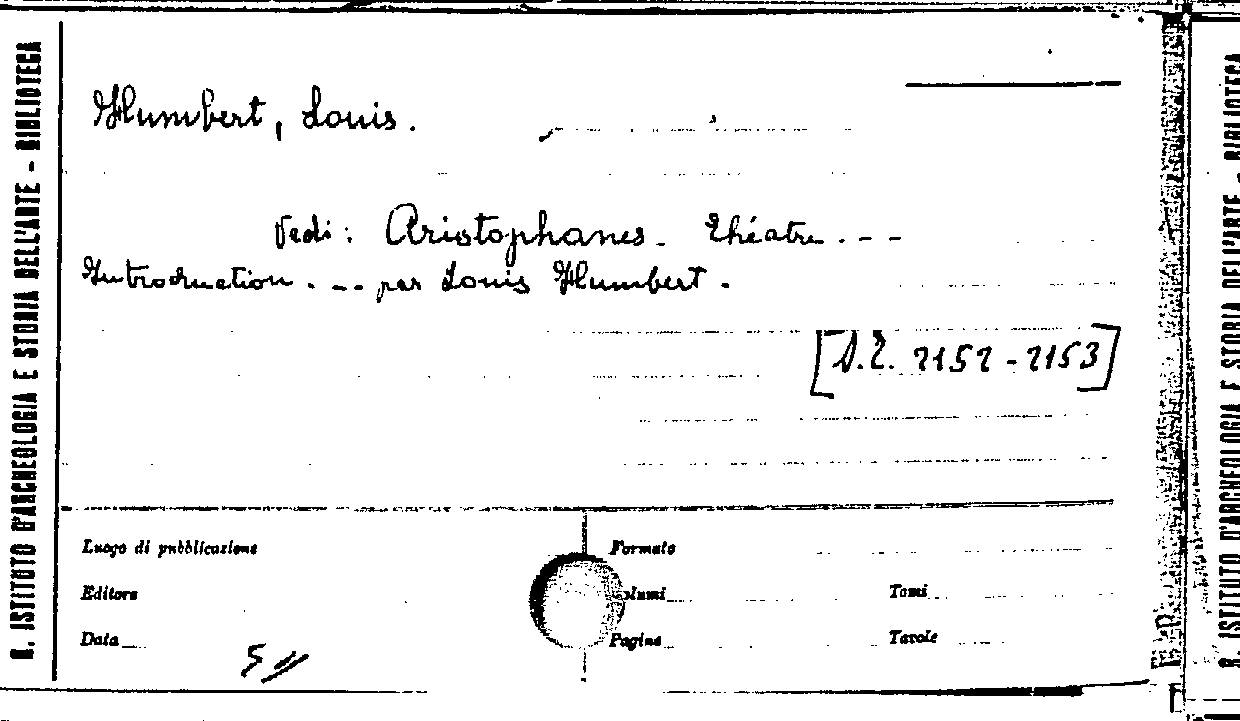 R. ISTITUTO D'ARCHEOLOGIA E STORIA DELL'ARTE - BIBLIOTECA
Humbert, Louis.
Vedi: Aristophanes. Théatre. . - -
Introduction . -- par Louis Humbert.
[D.E. 2152 - 2153]
Luogo di pubblicazione
Formato
Editore
Volumi
Tomi
Data
Pagine
Tavole
R. ISTITUTO D'ARCHEOLOGIA E STORIA DELL'ARTE - BIBLIOTECA